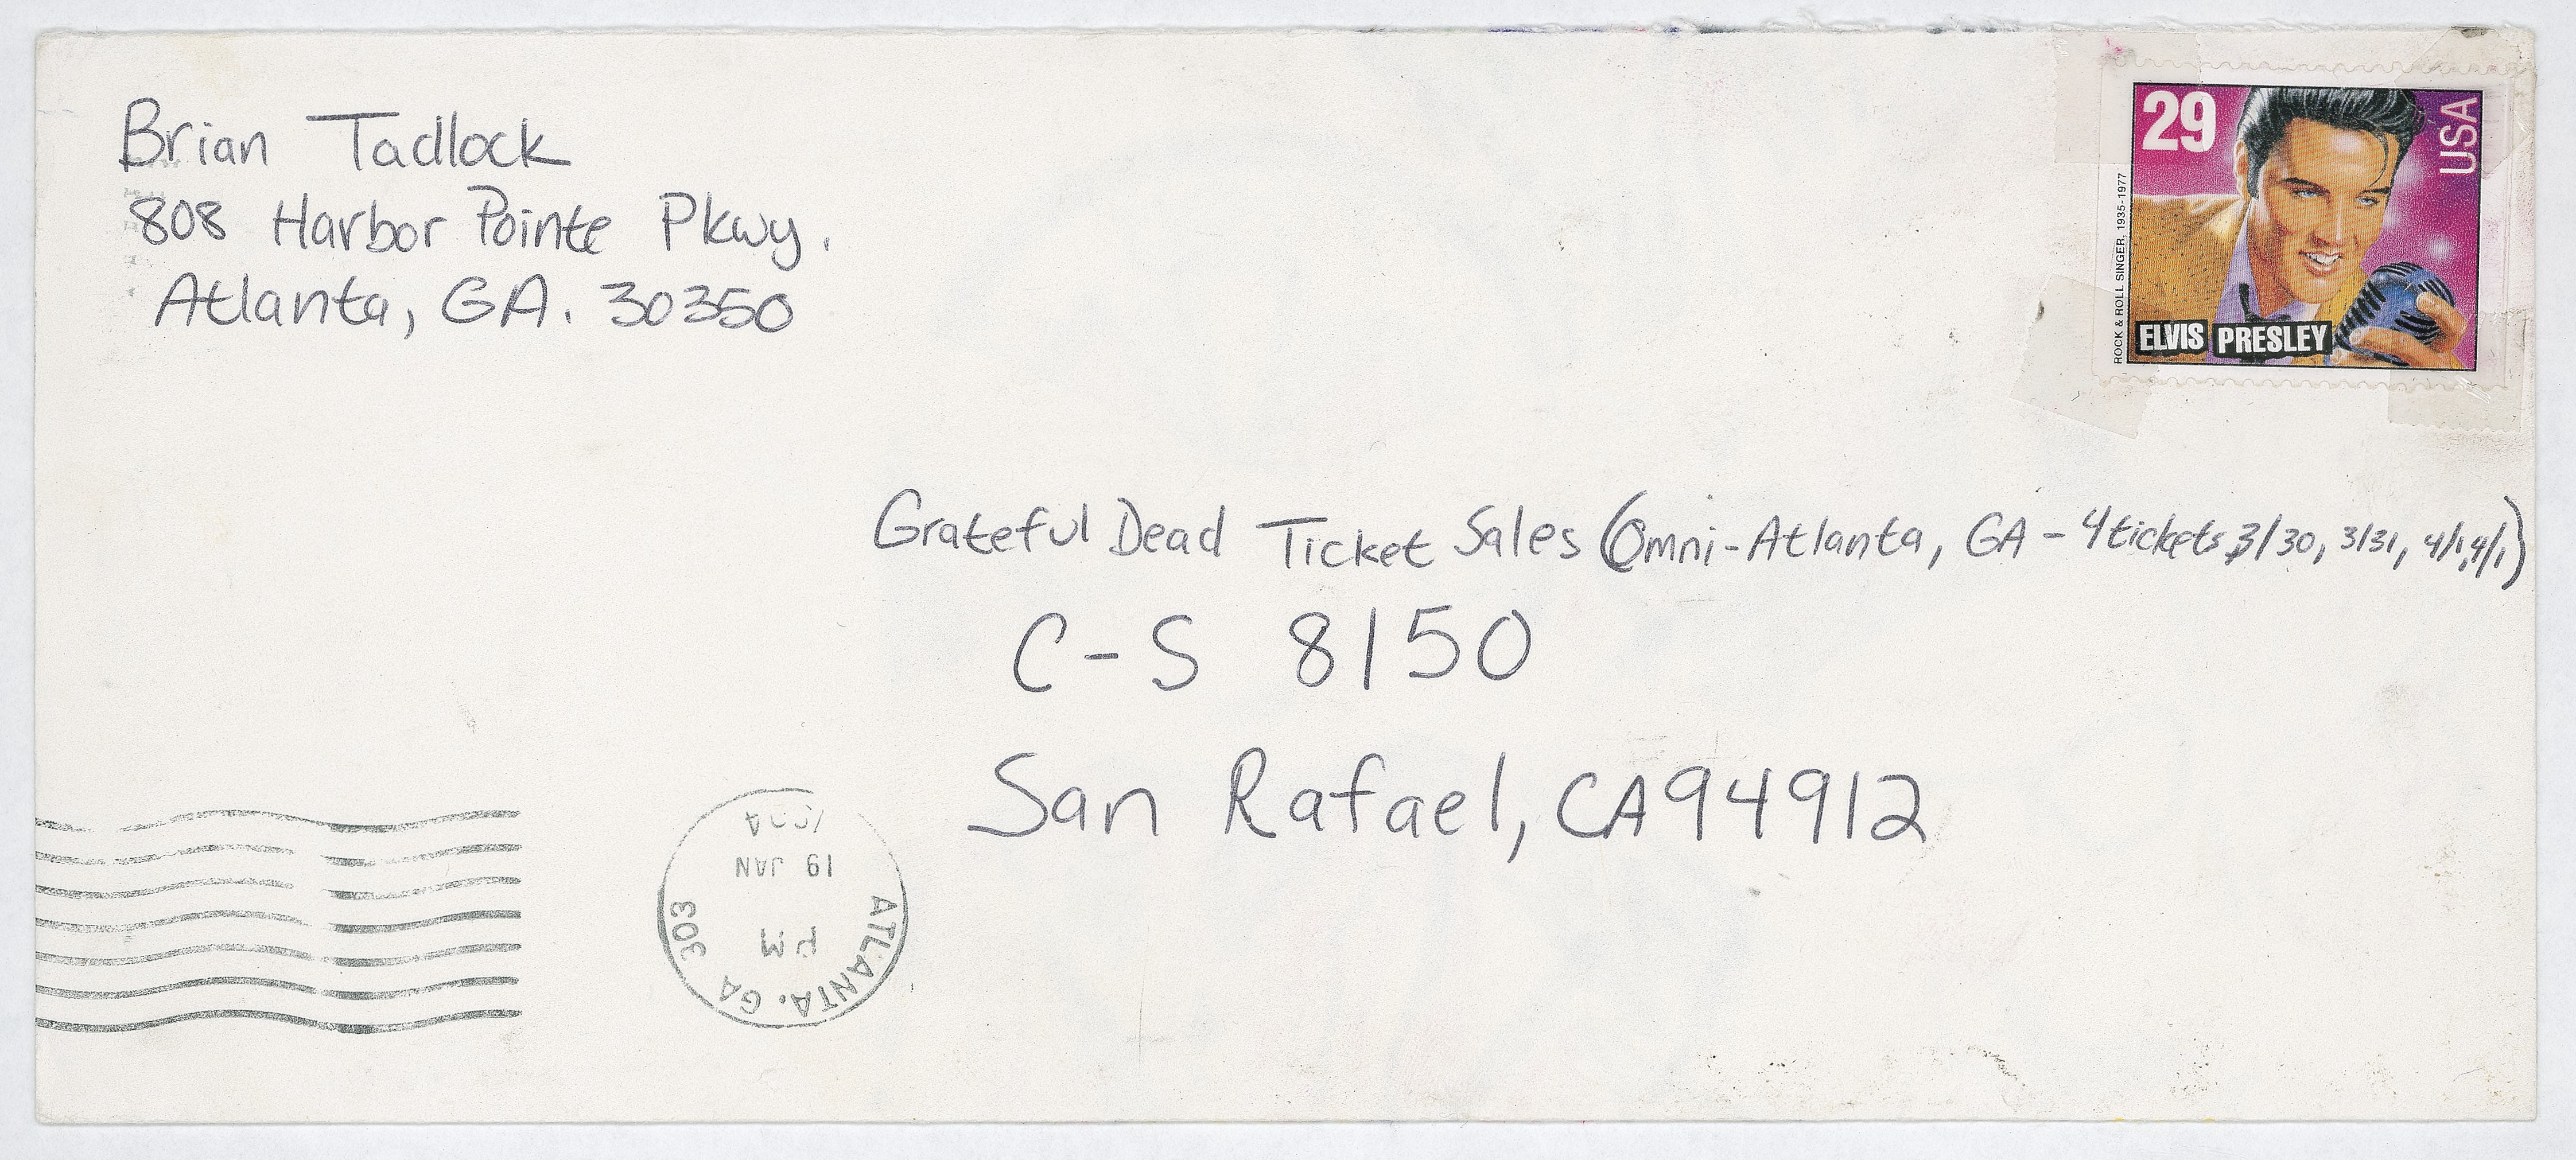 Brian Tadlock
808 Harbor Pointe Pkwy.
Atlanta, GA. 30350
29
USA
ROCK & ROLL SINGER, 1935-1977
ELVIS PRESLEY
Grateful Dead Ticket Sales (Omni-Atlanta, GA - 4 tickets 3/30, 3/31, 4/1, 4/1)
C-S 8150
San Rafael, CA 94912
ATLANTA. GA 303
PM
19 JAN